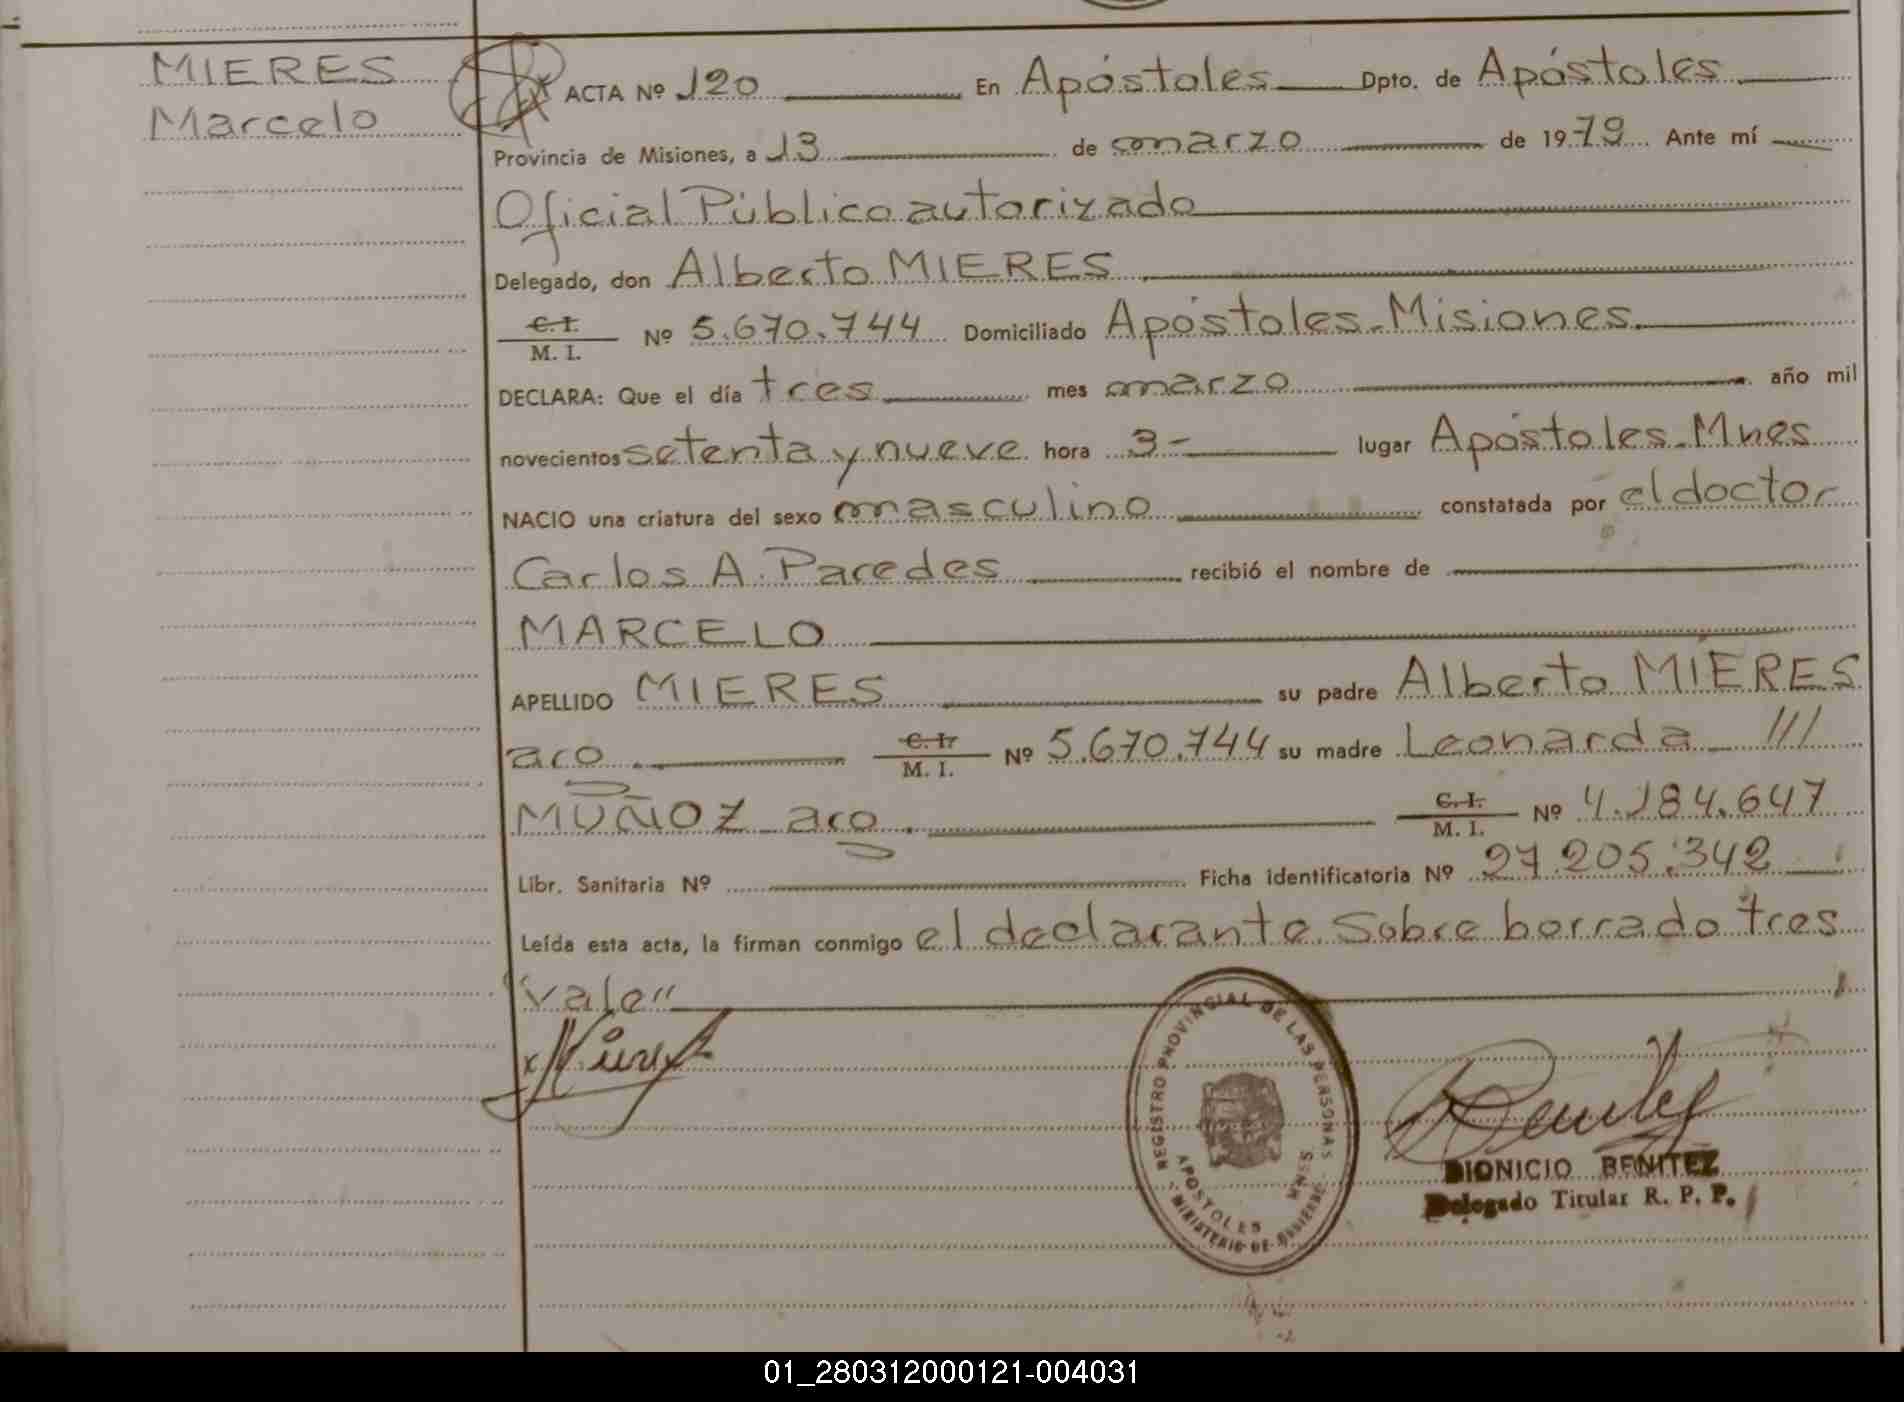 MIERES
Marcelo
ACTA Nº 120 En Apóstoles Dpto. de Apóstoles
Provincia de Misiones, a 13 de marzo de 1979 Ante mí
Oficial Público autorizado
Delegado, don Alberto MIERES
C. I.
M. I. Nº 5.670.744 Domiciliado Apóstoles-Misiones.
DECLARA: Que el día tres mes marzo año mil
novecientos setenta y nueve hora 3- lugar Apóstoles-Mnes
NACIO una criatura del sexo masculino constatada por el doctor
Carlos A. Paredes recibió el nombre de
MARCELO
APELLIDO MIERES su padre Alberto MIERES
aro. C. I. M. I. Nº 5.670.744 su madre Leonarda ///
MUÑOZ aro. C. I. M. I. Nº 4.184.647
Libr. Sanitaria Nº Ficha identificatoria Nº 27.205.342
Leída esta acta, la firman conmigo el declarante. Sobre borrado tres
"vale"
REGISTRO PROVINCIAL DE LAS PERSONAS
APOSTOLES MNES
MINISTERIO DE GOBIERNO
DIONICIO BENITEZ
Delegado Titular R. P. P.
01_280312000121-004031